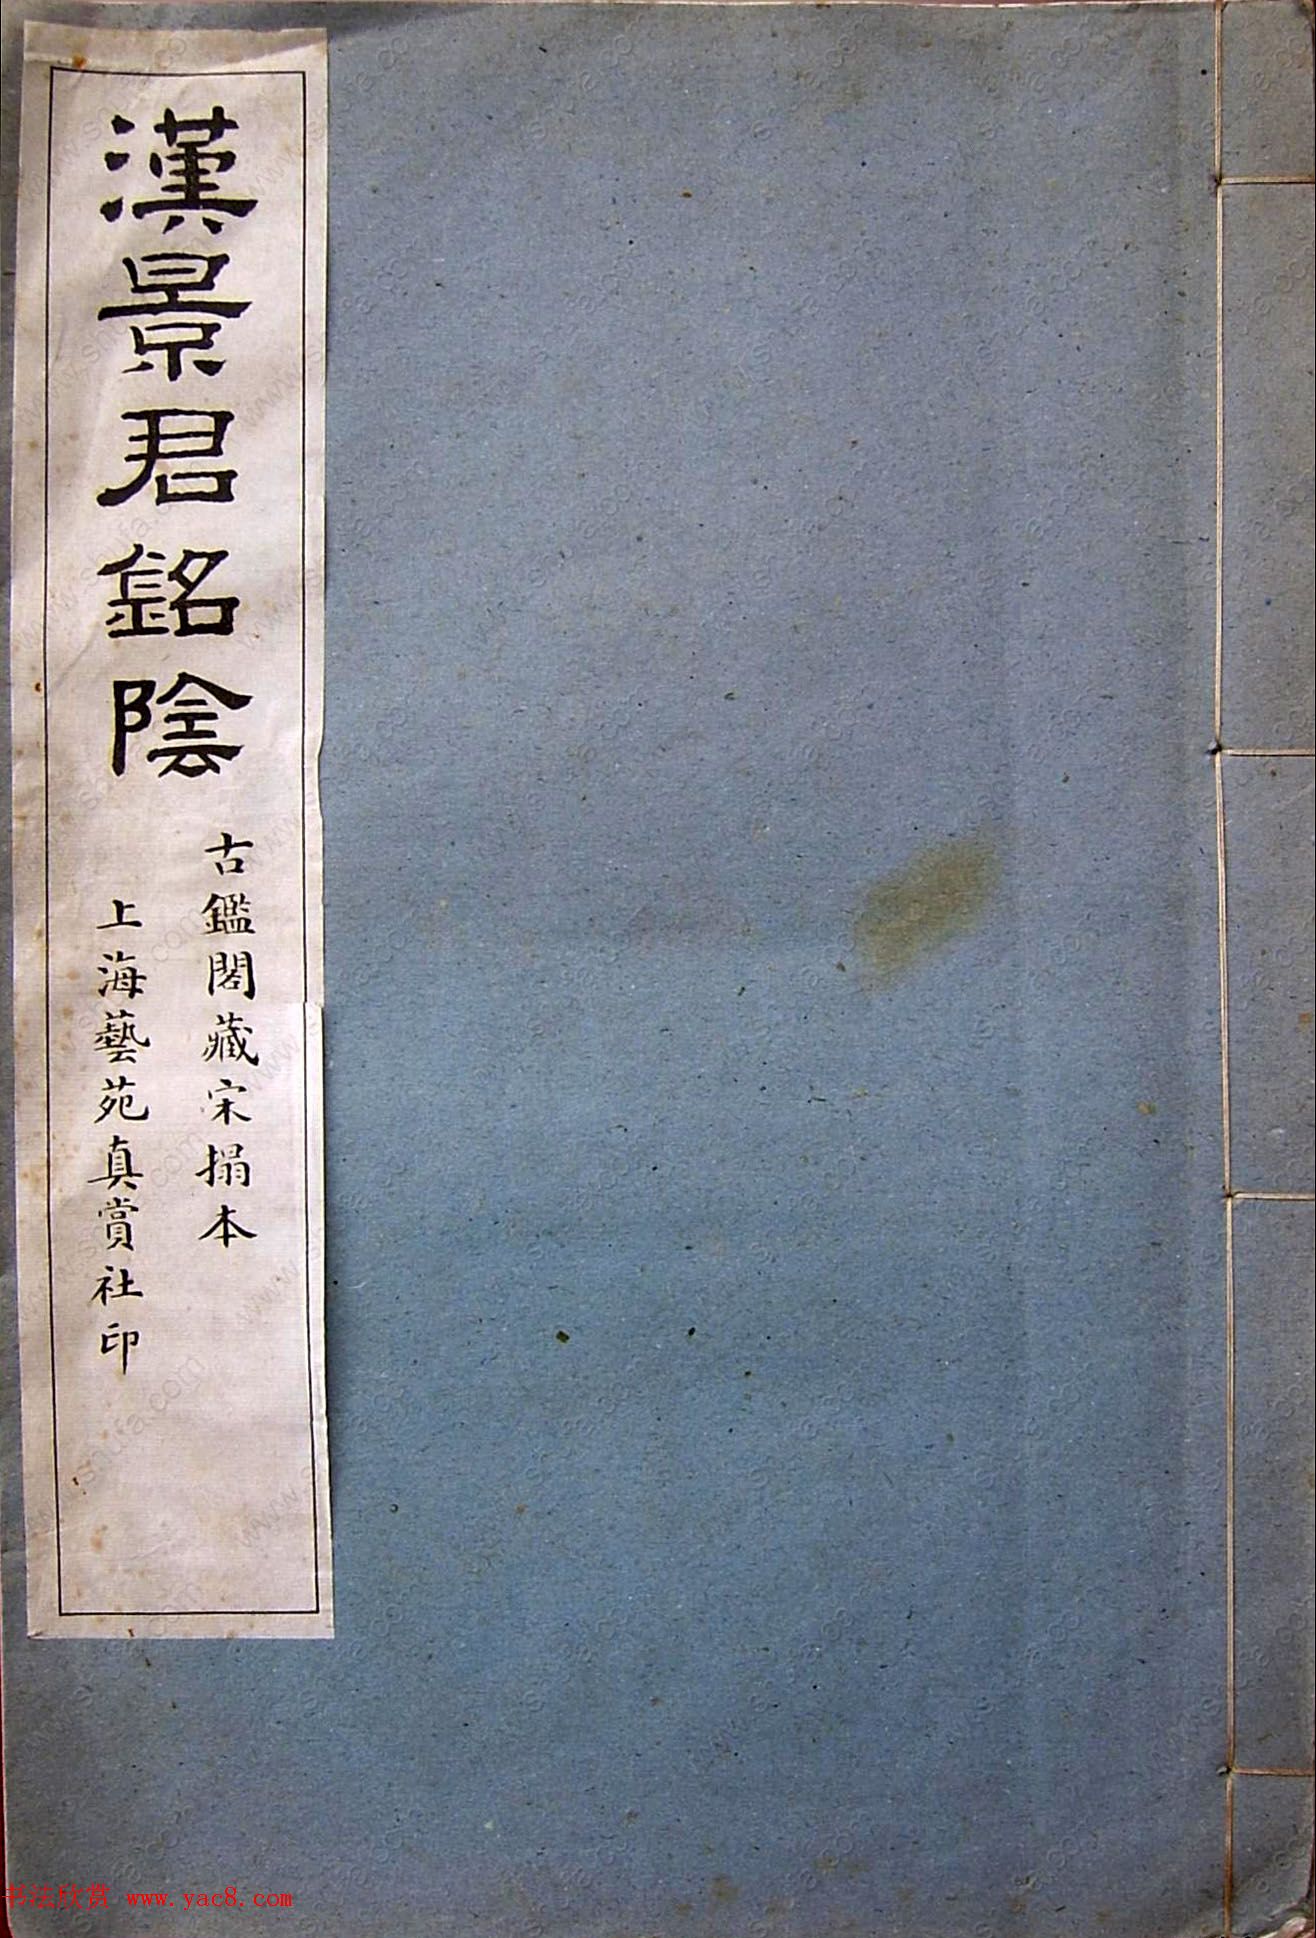 漢景君銘陰
古鑑閣藏宋搨本
上海藝苑真賞社印
书法欣赏 www.yac8.com